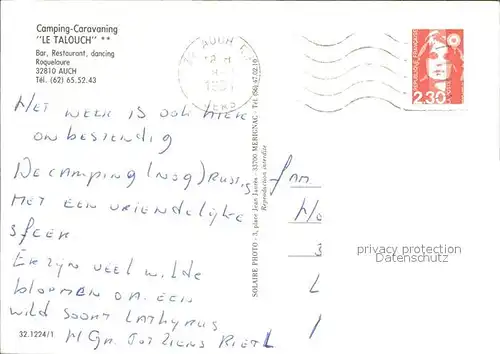 Camping-Caravaning
"LE TALOUCH" **
Bar, Restaurant, dancing
Roquelaure
32810 AUCH
Tel. (62) 65.52.43
AUCH
GERS
REPUBLIQUE FRANÇAISE
2,30
LA POSTE
HET WEER IS OOK HIER
ONBESTENDIG
DE CAMPING (NOG) RUSTIG
MET EEN VRIENDELIJKE
SFEER
ER ZIJN VEEL WILDE
BLOEMEN O.A. EEN
WILD SOORT LATHYRUS
H Gr. TOT ZIENS RIET
SOLAIRE PHOTO - 3, place Jean Jaurès - 33700 MERIGNAC - Tél.
Reproduction interdite
FAM
privacy protection
Datenschutz
32.1224/1